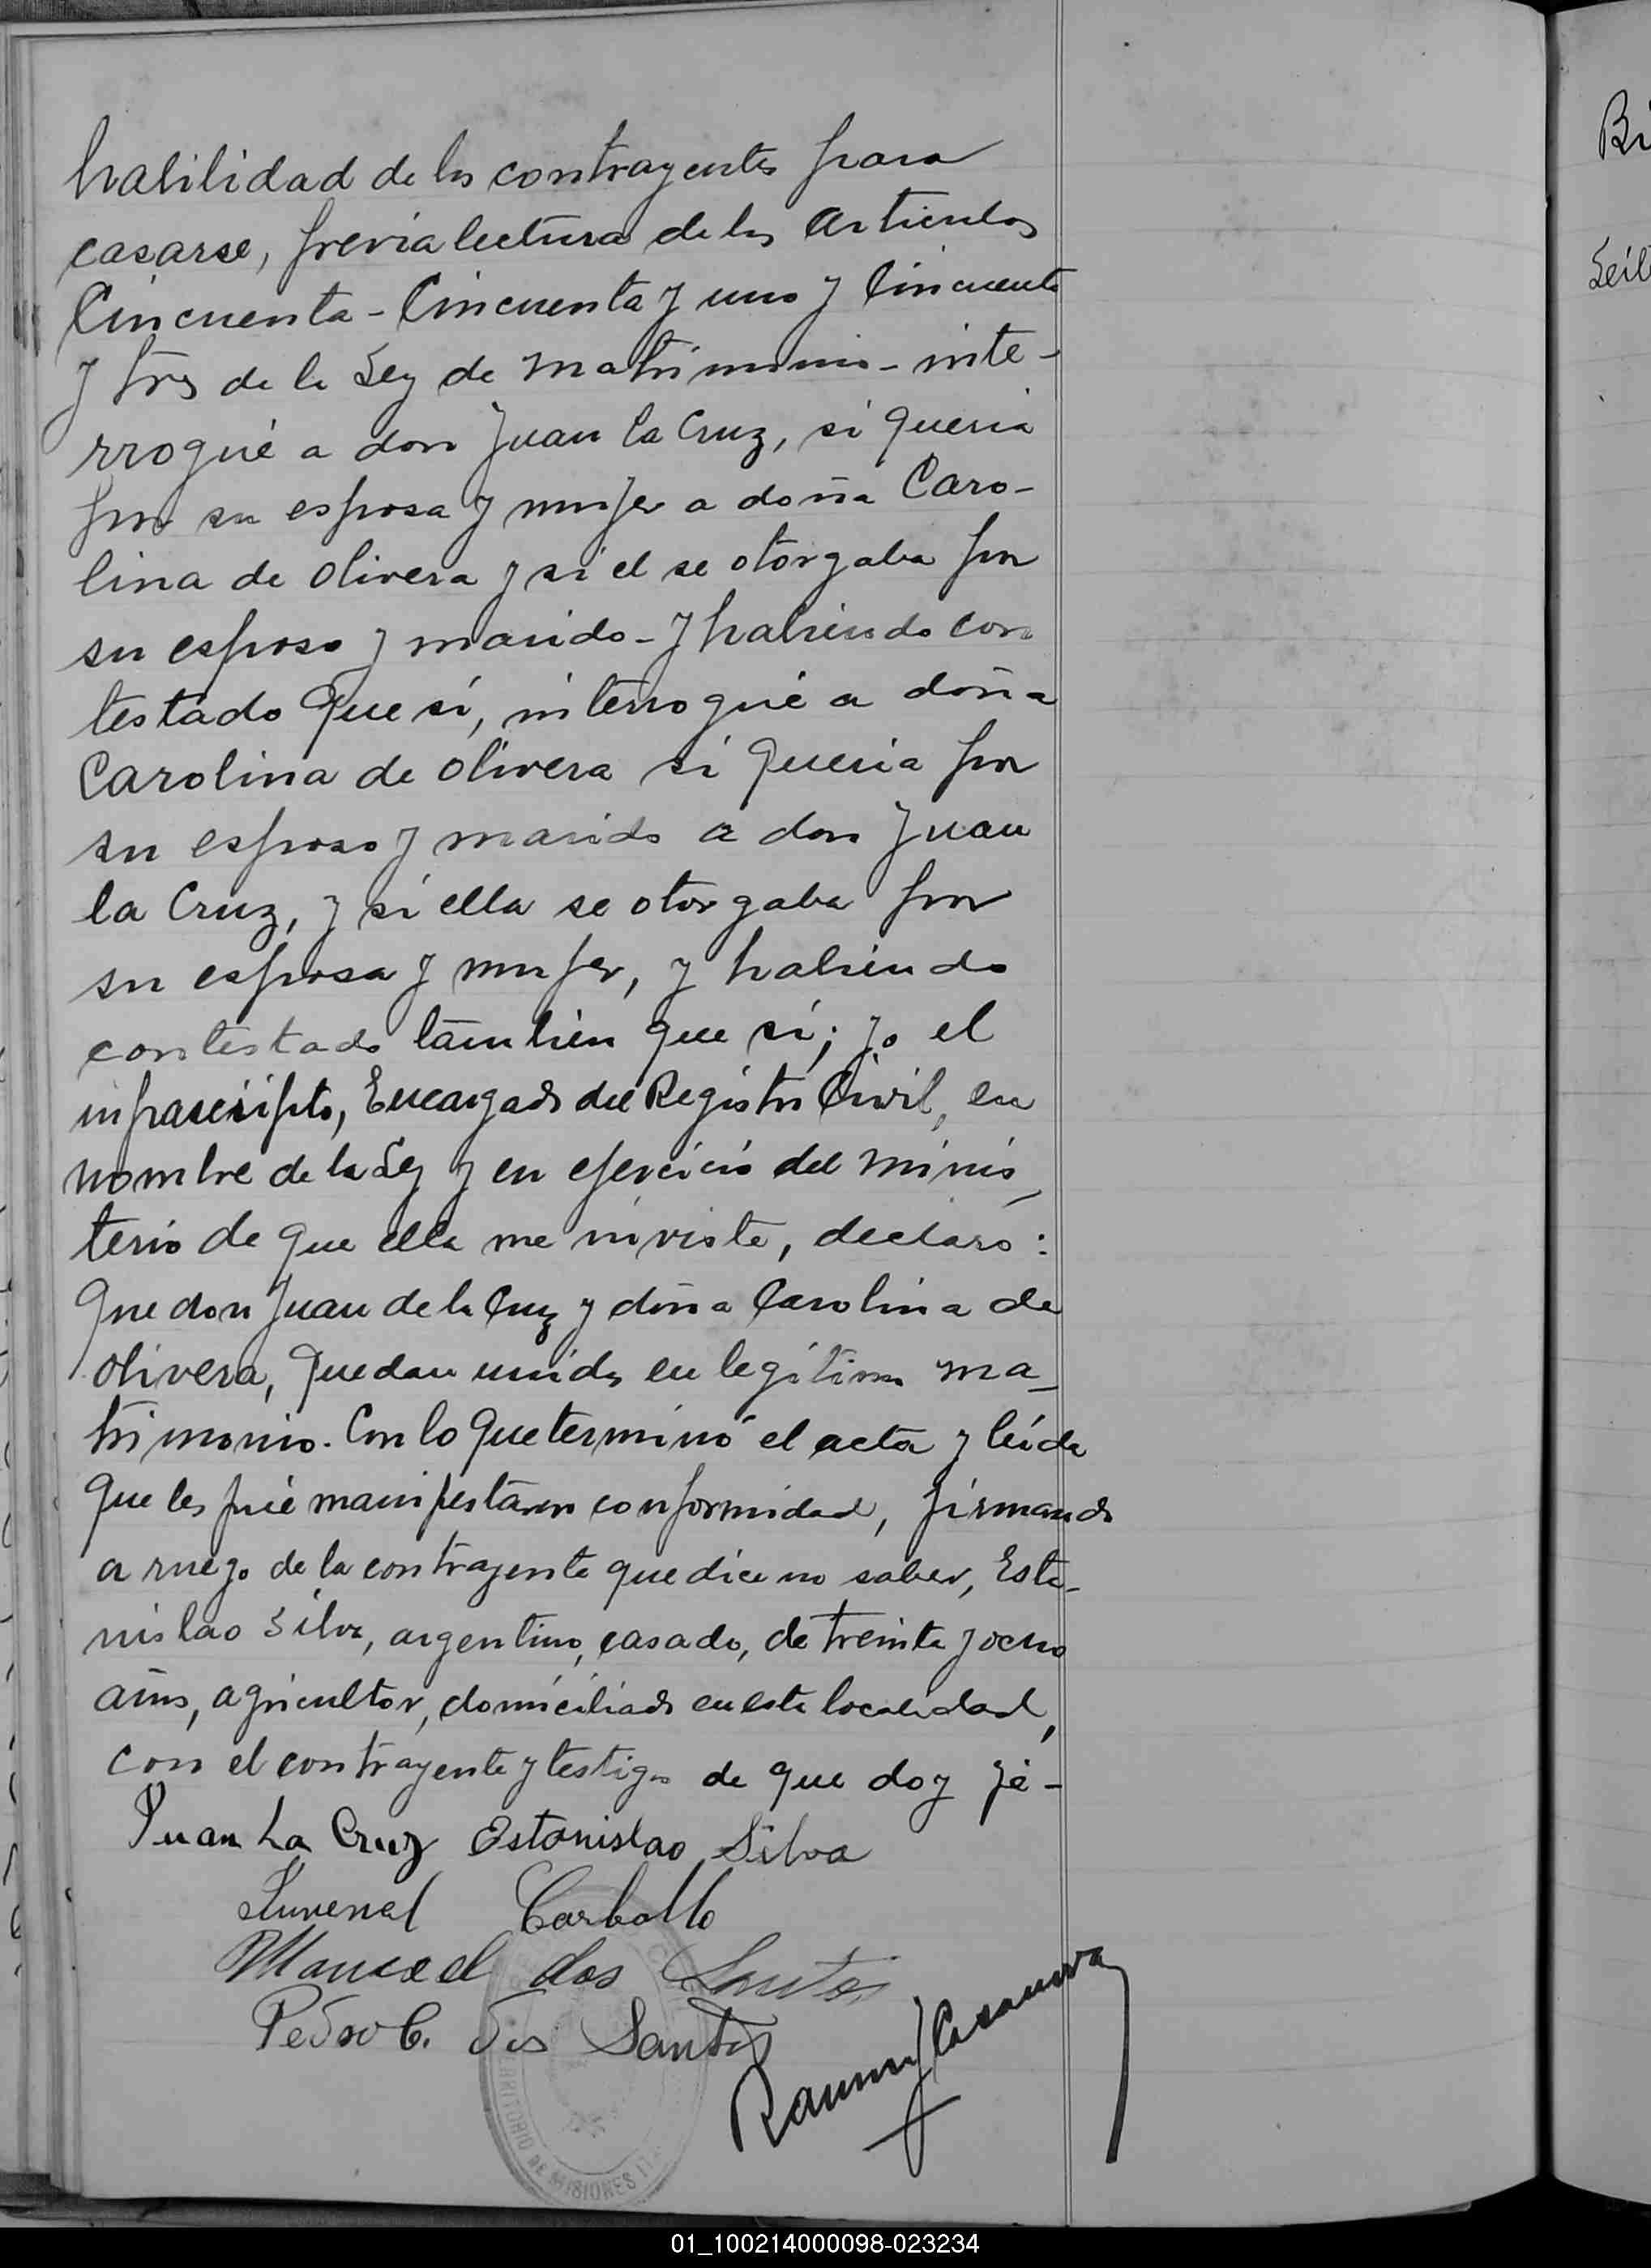 habilidad de los contrayentes para
casarse, previa lectura de los Articulos
Cincuenta - Cincuenta y uno y Cincuenta
y tres de la Ley de Matrimonio - inte-
rrogué a don Juan La Cruz, si queria
por su esposa y mujer a doña Caro-
lina de Olivera y si el se otorgaba por
su esposo y marido - y habiendo con
testado que sí, interrogué a doña
Carolina de Olivera si queria por
su esposo y marido a don Juan
la Cruz, y si ella se otorgaba por
su esposa y mujer, y habiendo
contestado tambien que sí; yo el
infrascripto, Encargado del Registro Civil, en
nombre de la Ley y en ejercicio del minis
terio de que ella me inviste, declaro:
Que don Juan de la Cruz y doña Carolina de
Olivera, quedan unidos en legítimo ma-
trimonio. Con lo que terminó el acta y leída
que les fué manifestaron conformidad, firmando
a ruego de la contrayente que dice no saber, Esta-
nislao Silva, argentino, casado, de treinta y ocho
años, agricultor, domiciliado en esta localidad,
con el contrayente y testigos de que doy fé -
Juan La Cruz Estanislao Silva
Juvenal Carballo
Manuel dos Santos
Pedro C. dos Santos
Ramon Casanova
TERRITORIO DE MISIONES
Bi
Seil
01_100214000098-023234